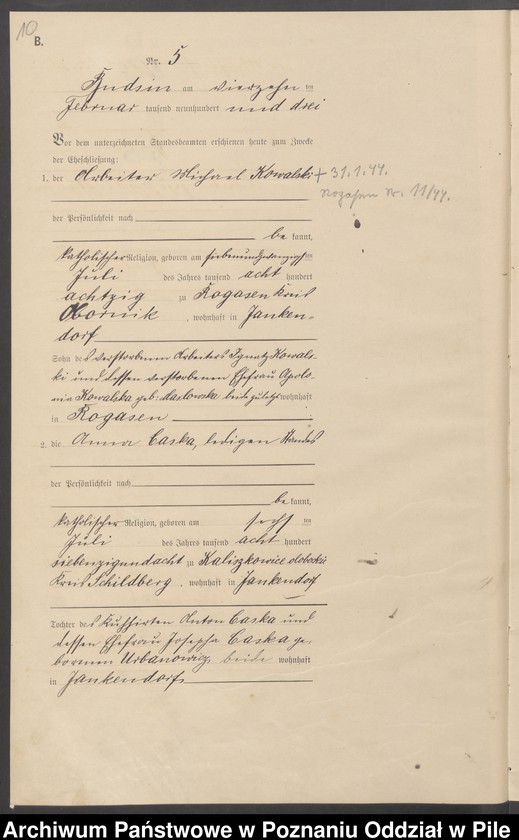 10
B.
Nr. 5
Budsin am vierzehn ten
Februar tausend neunhundert und drei
Vor dem unterzeichneten Standesbeamten erschienen heute zum Zwecke
der Eheschließung:
1. der Arbeiter Michael Kowalski + 31.1.44.
Rogasen Nr. 11/44.
der Persönlichkeit nach
be kannt,
katholischer Religion, geboren am siebenundzwanzigsten
Juli des Jahres tausend acht hundert
achtzig zu Rogasen Kreis
Obornik, wohnhaft in Janken-
dorf
Sohn des verstorbenen Arbeiters Ignatz Kowals-
ki und dessen verstorbenen Ehefrau Apolo-
nia Kowalska geb. Maslowska beide zuletzt wohnhaft
in Rogasen
2. die Anna Caska, ledigen Standes
der Persönlichkeit nach
be kannt,
katholischer Religion, geboren am sechs ten
Juli des Jahres tausend acht hundert
siebenzigundacht zu Kaliszkowice olobockie
Kreis Schildberg, wohnhaft in Jankendorf
Tochter des Kuhhirten Anton Caska und
dessen Ehefrau Josepha Caska ge-
borenen Urbanowicz beide wohnhaft
in Jankendorf
Archiwum Państwowe w Poznaniu Oddział w Pile